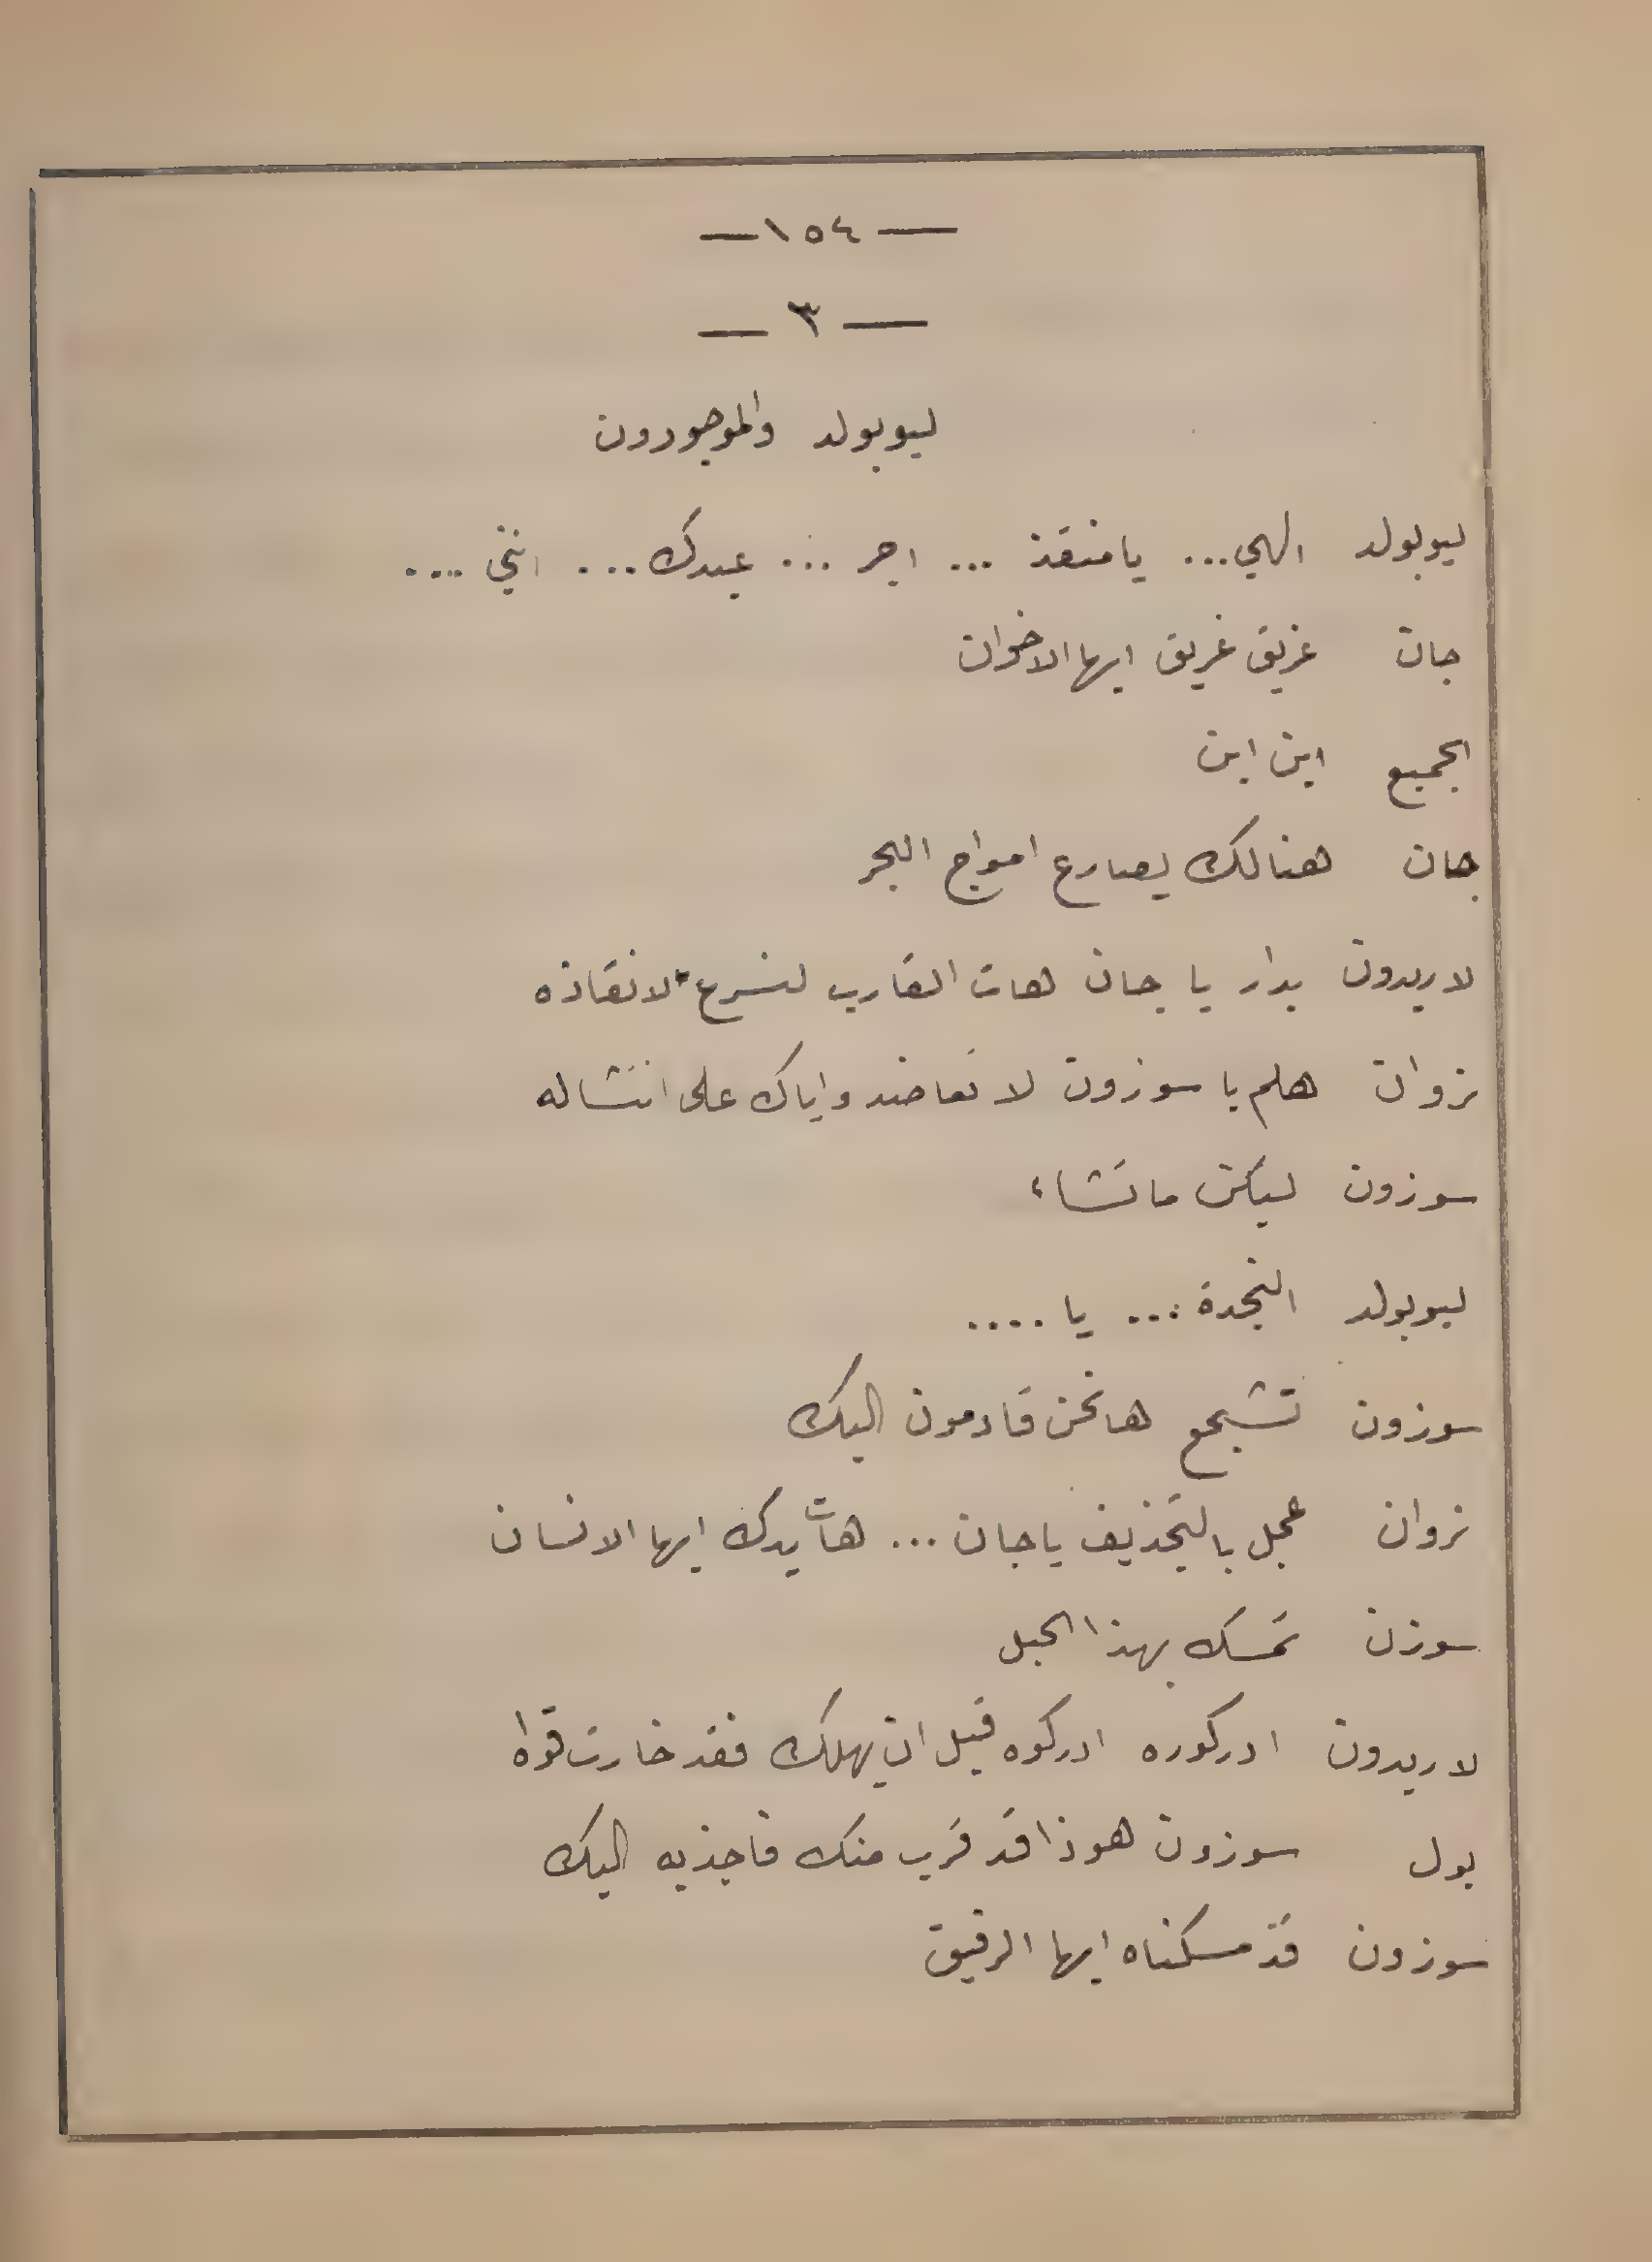 — ١٥٤ —
— ٣ —
ليوبولد والموجودون
ليوبولد الهي ... يا منقذ ... اجر ... عبدك ... انني ....
جان غريق غريق ايها الاخوان
الجميع اين اين
جان هنالك يصارع امواج البحر
لاريدون بدار يا جان هات القارب لنسرع لانقاذه
نروان هلم يا سوزون لا تعاضد واياك على انتشاله
سوزون ليكن ما تشاء
ليوبولد النجدة ... يا ....
سوزون تشجع ها نحن قادمون اليك
نروان عجل بالتجذيف يا جان ... هات يدك ايها الانسان
سوزن تمسك بهذا الحبل
لاريدون ادركوره ادركوه قبل ان يهلك فقد خارت قواه
بول سوزون هوذا قد قرب منك فاجذبه اليك
سوزون قد مسكناه ايها الرفيق